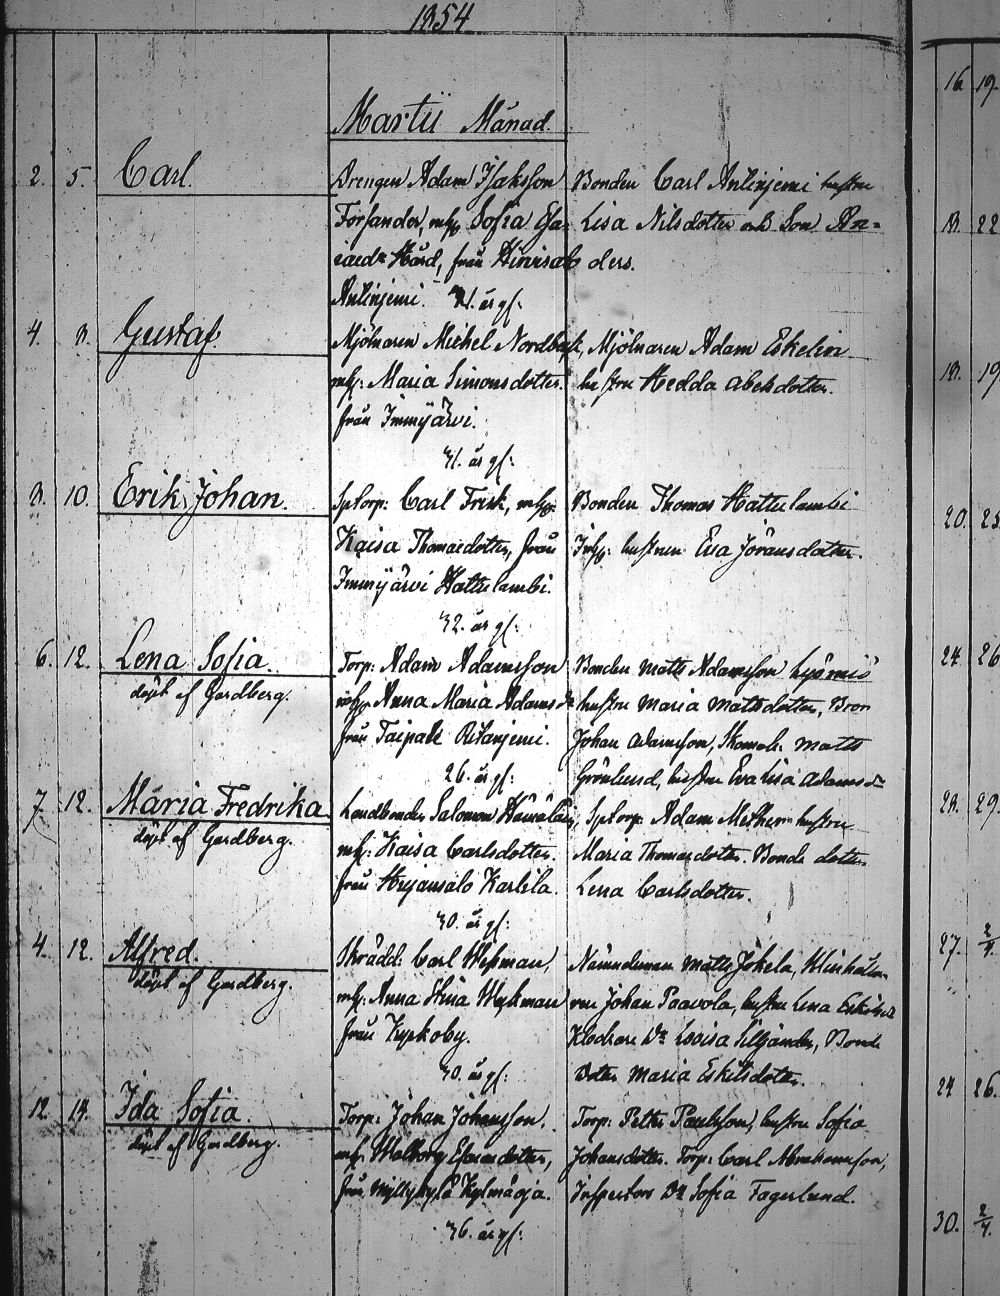 1854
Martii Månad.
2. 5. Carl.
Drengen Adam Isaksson
Forsander, mhu Sofia Esa=
iaedr Hård, från
Antinjemi. 31. år gl:
Bonden Carl Antinjemi hustru
Lisa Nilsdotter och Son An=
ders.
4. 8. Gustaf
Mjölnaren Michel
mh: Maria Simonsdotter.
från Immijärvi.
31. år gl:
Mjölnaren Adam Eskelin
hustru Hedda Abelsdotter.
8. 10. Erik Johan.
Sptorp: Carl Frisk, mhu:
Kaisa Thomasdotter, från
Immijärvi Hattulambi.
32. år gl:
Bonden Thomas Hattulambi
hustrun Eva Jöransdotter.
6. 12. Lena Sofia.
döpt af Gardberg.
Torp: Adam Adamsson
mhu Anna Maria Adamsdr
från Taipale
26. år gl:
Bonden Matts Adamsson
hustru Maria Mattsdotter, Bror
Johan Adamsson, Skomak: Matts
Grönlund, hustru Eva Lisa Adamsdr
7. 12. Maria Fredrika
döpt af Gardberg.
Landbonde Salomon
mh: Kaisa Carlsdotter.
från Karlila.
30. år gl:
Sptorp: Adam hustru
Maria Thomasdotter. Bonde dotter
Lena Carlsdotter.
4. 12. Alfred.
döpt af Gardberg.
Skrädd: Carl Wekman,
mh: Anna Stina Wekman
från Kyrkoby.
30. år gl:
Nämndeman Matts Jökela,
Johan Paavola, hustru Lena
Klockare Dr Lovisa Bonde
Dotter Maria Eskilsdotter.
12. 14. Ida Sofia.
döpt af Gardberg.
Torp: Johan Johansson,
mh: Walborg Esaiasdotter,
från Myllykylä Kylmäoja.
36. år gl:
Torp: Petter Paulsson, hustru Sofia
Johansdotter. Torp: Carl Abrahamsson,
Inspectors Dr Sofia Fagerlund.
16. 19.
18. 22
18. 19
20. 25
24. 26
28. 29
27. 2/4.
24 26.
30. 2/4.